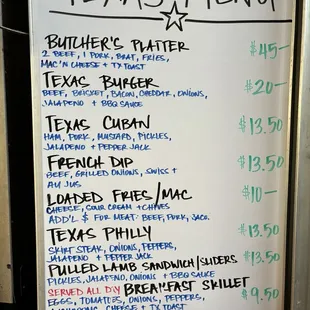 TEXAS MENU
BUTCHER'S PLATTER $45-
2 BEEF, 1 PORK, BRAT, FRIES,
MAC 'N CHEESE + TX TOAST
TEXAS BURGER $20-
BEEF, BRISKET, BACON, CHEDDAR, ONIONS,
JALAPENO + BBQ SAUCE
TEXAS CUBAN $13.50
HAM, PORK, MUSTARD, PICKLES,
JALAPENO + PEPPER JACK
FRENCH DIP $13.50
BEEF, GRILLED ONIONS, SWISS +
AU JUS
LOADED FRIES/MAC $10-
CHEESE, SOUR CREAM + CHIVES
ADD'L $ FOR MEAT: BEEF, PORK, JACK.
TEXAS PHILLY $13.50
SKIRT STEAK, ONIONS, PEPPERS,
JALAPENO + PEPPER JACK
PULLED LAMB SANDWICH/SLIDERS $13.50
PICKLES, JALAPENO, ONIONS + BBQ SAUCE
SERVED ALL DAY BREAKFAST SKILLET $9.50
EGGS, TOMATOES, ONIONS, PEPPERS,
CHEESE + TX TOAST